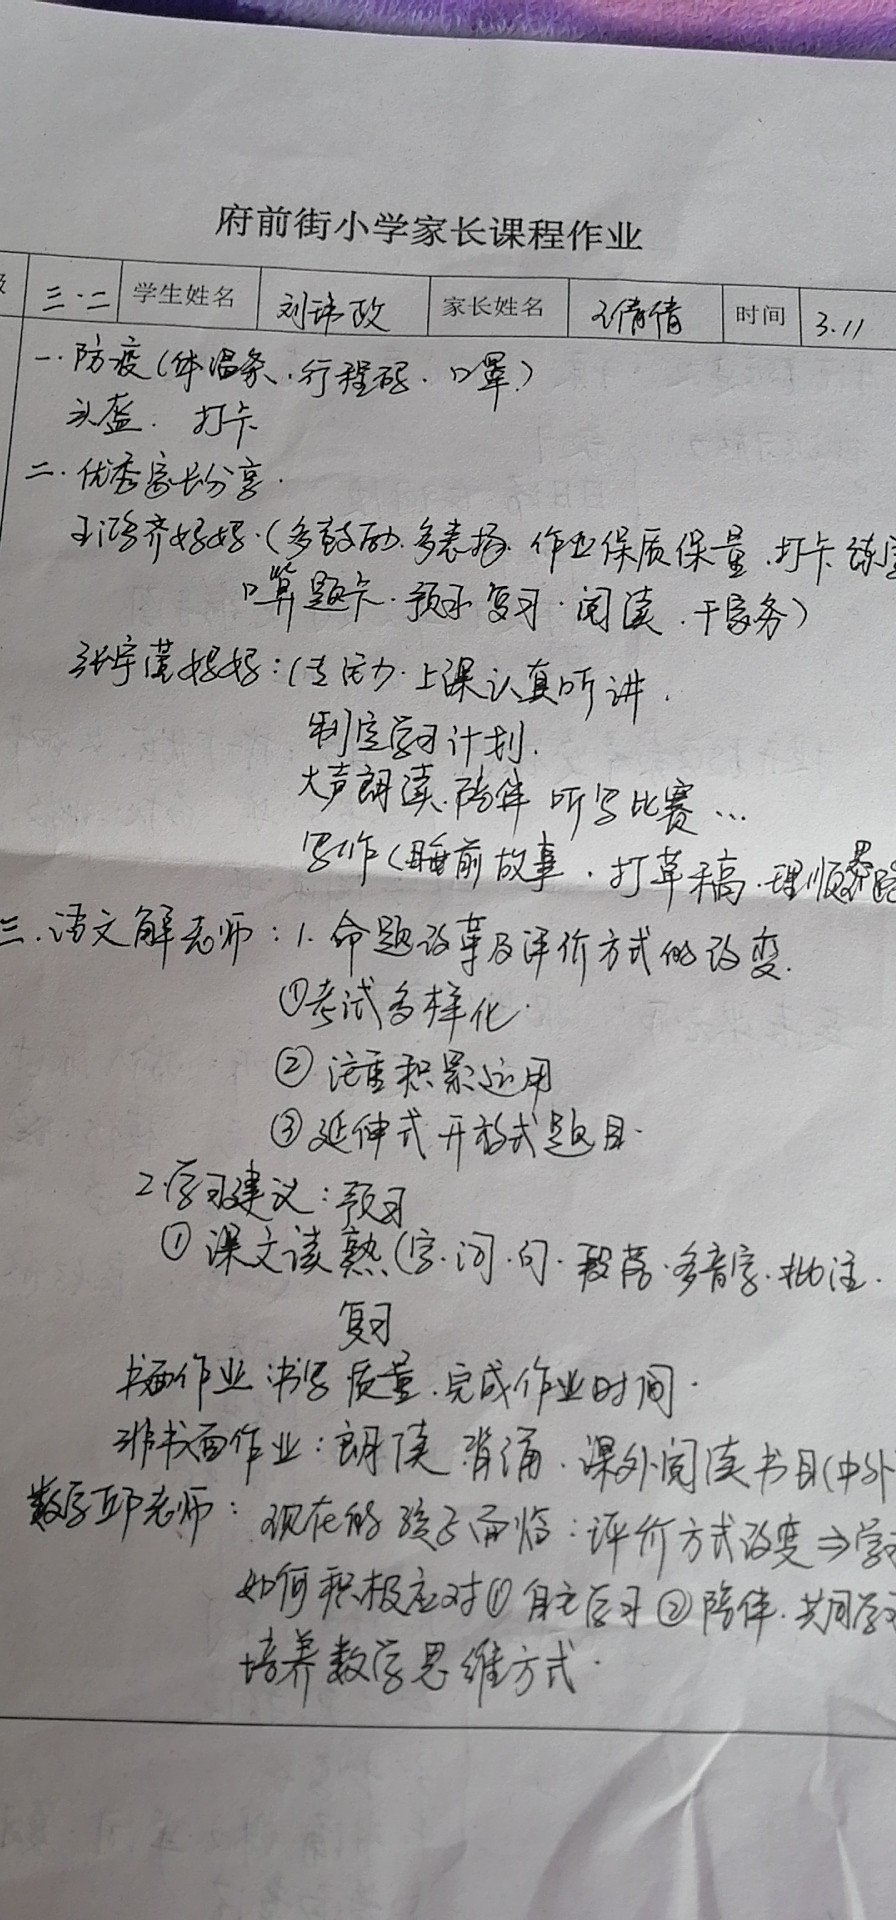 府前街小学家长课程作业
级 三.二 学生姓名 刘玮政 家长姓名 王倩倩 时间 3.11
一.防疫(体温条.行程码.口罩)
头盔. 打卡
二.优秀家长分享.
王鸿齐妈妈.(多鼓励.多表扬.作业保质保量.打卡练
口算题卡.预习复习.阅读.干家务)
张宇萱妈妈:(专注力.上课认真听讲.
制定学习计划.
大声朗读.陪伴 听写比赛...
写作(睡前故事.打草稿.理顺思路
三.语文解老师:1.命题改革及评价方式的改变.
①考试多样化.
②注重积累运用
③延伸式开放式题目.
2.学习建议:预习
①课文读熟(字.词.句.段落.多音字.批注.
复习
书面作业:书写质量.完成作业时间.
非书面作业:朗读 背诵.课外阅读书目(中外
数学邱老师:现在的孩子面临:评价方式改变⇒学
如何积极应对①自主学习②陪伴.共同学习
培养数学思维方式.